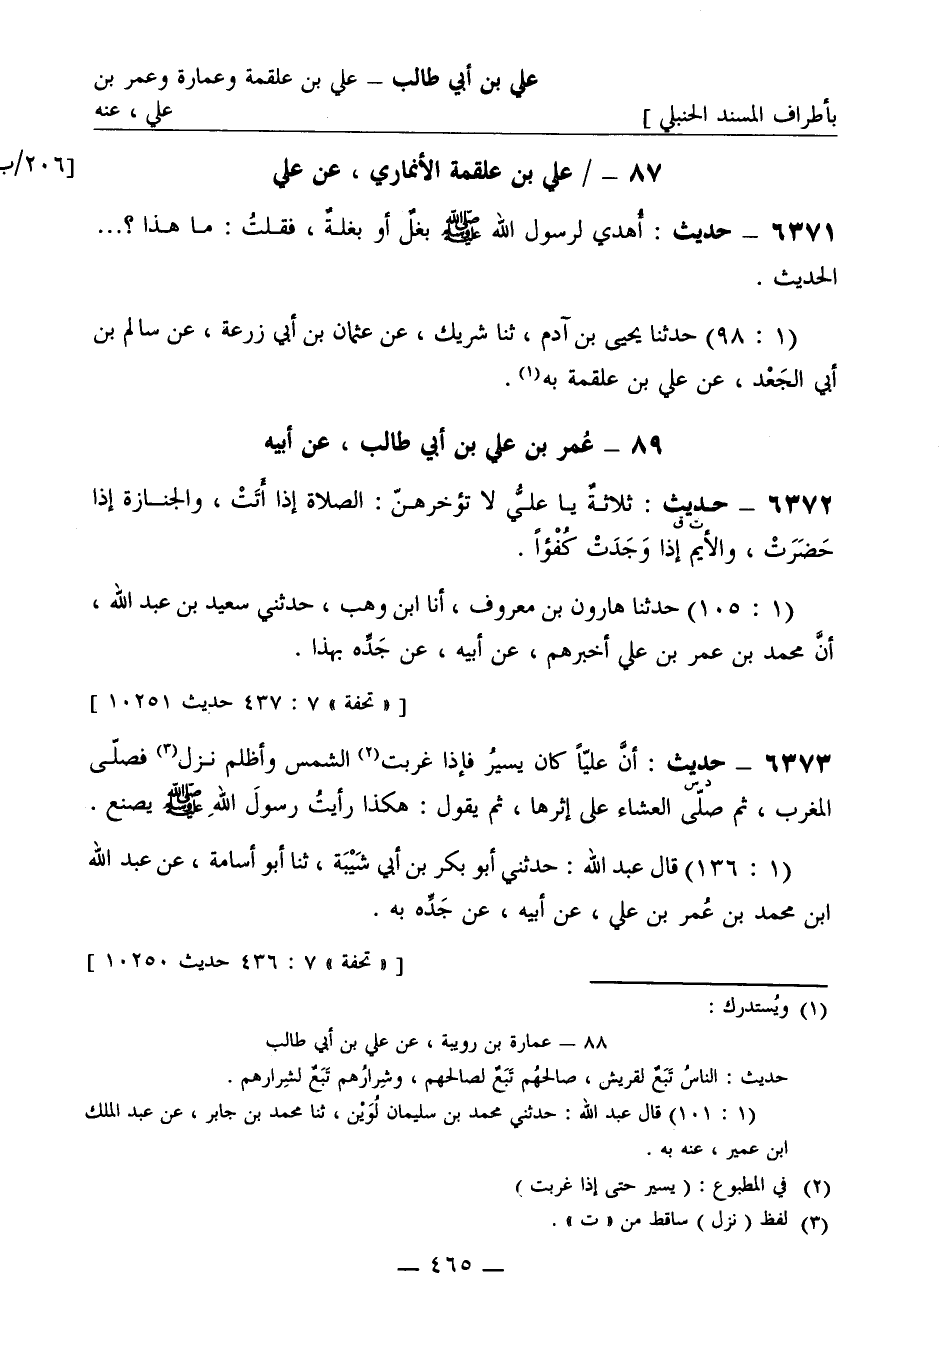 علي بن أبي طالب – علي بن علقمة وعمارة وعمر بن
بأطراف المسند الحنبلي ] علي ، عنه
٨٧ – / علي بن علقمة الأنماري ، عن علي [٢٠٦/ب
٦٣٧١ – حديث : أُهدي لرسول الله ﷺ بغلٌ أو بغلةٌ ، فقلتُ : ما هذا ؟...
الحديث .
(١ : ٩٨) حدثنا يحيى بن آدم ، ثنا شريك ، عن عثمان بن أبي زرعة ، عن سالم بن
أبي الجَعْد ، عن علي بن علقمة به(١) .
٨٩ – عُمر بن علي بن أبي طالب ، عن أبيه
٦٣٧٢ – حديث : ثلاثةٌ يا عليُّ لا تؤخرهنّ : الصلاة إذا أَتَتْ ، والجنازة إذا
ت ق
حَضَرَتْ ، والأيم إذا وَجَدَتْ كُفْؤاً .
(١ : ١٠٥) حدثنا هارون بن معروف ، أنا ابن وهب ، حدثني سعيد بن عبد الله ،
أنَّ محمد بن عمر بن علي أخبرهم ، عن أبيه ، عن جَدِّه بهذا .
[ « تحفة » ٧ : ٤٣٧ حديث ١٠٢٥١ ]
٦٣٧٣ – حديث : أنَّ عليّاً كان يسيرُ فإذا غربت(٢) الشمس وأظلم نزل(٣) فصلّى
د س
المغرب ، ثم صلّى العشاء على إثرها ، ثم يقول : هكذا رأيتُ رسولَ اللهِ ﷺ يصنع .
(١ : ١٣٦) قال عبد الله : حدثني أبو بكر بن أبي شَيْبَة ، ثنا أبو أسامة ، عن عبد الله
ابن محمد بن عُمر بن علي ، عن أبيه ، عن جَدِّه به .
[ « تحفة » ٧ : ٤٣٦ حديث ١٠٢٥٠ ]
(١) ويُستدرك :
٨٨ – عمارة بن رويبة ، عن علي بن أبي طالب
حديث : الناسُ تَبَعٌ لقريش ، صالحهُم تَبَعٌ لصالحهم ، وشِرارُهم تَبَعٌ لشرارهم .
(١ : ١٠١) قال عبد الله : حدثني محمد بن سليمان لُوَيْن ، ثنا محمد بن جابر ، عن عبد الملك
ابن عمير ، عنه به .
(٢) في المطبوع : ( يسير حتى إذا غربت )
(٣) لفظ ( نزل ) ساقط من « ت » .
— ٤٦٥ —